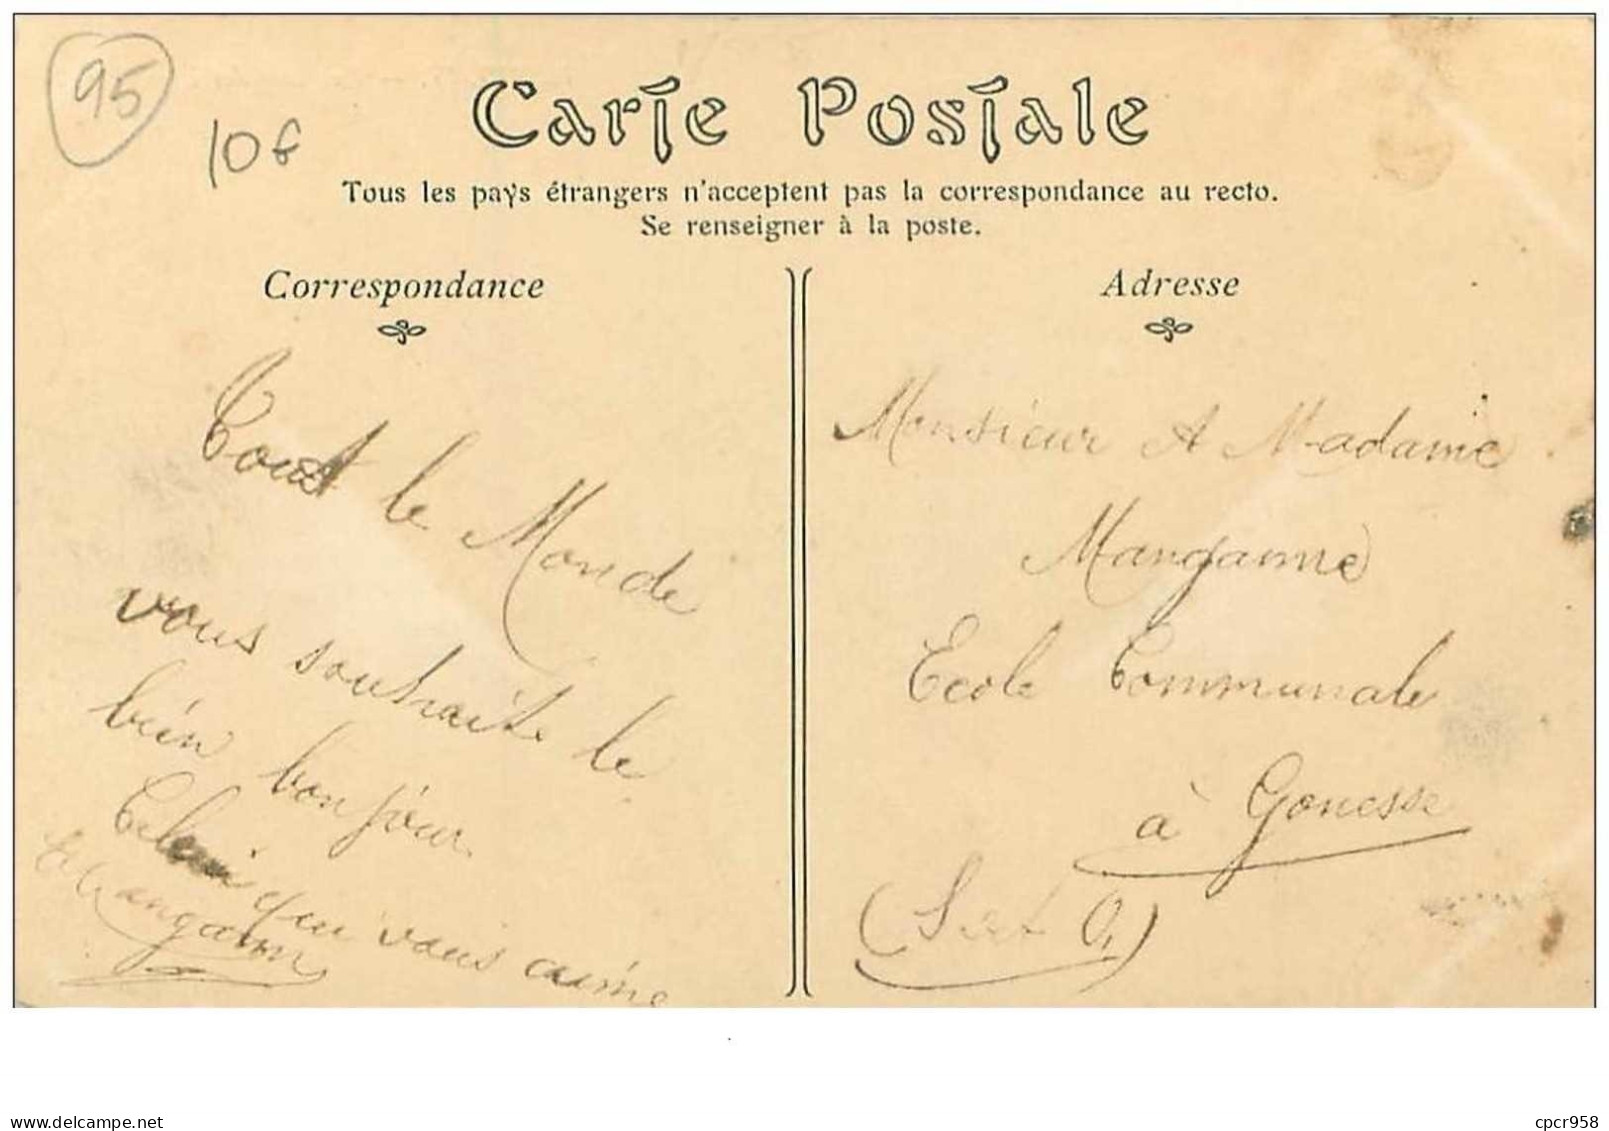 95
10 f
Carte Postale
Tous les pays étrangers n'acceptent pas la correspondance au recto.
Se renseigner à la poste.
Correspondance
Tout le Monde
vous souhaite le
bien bonjour
Celui qui vous aime
Mangann
Adresse
Monsieur et Madame
Manganne
Ecole Communale
à Gonesse
(Set O.)
www.delcampe.net
cpcr958